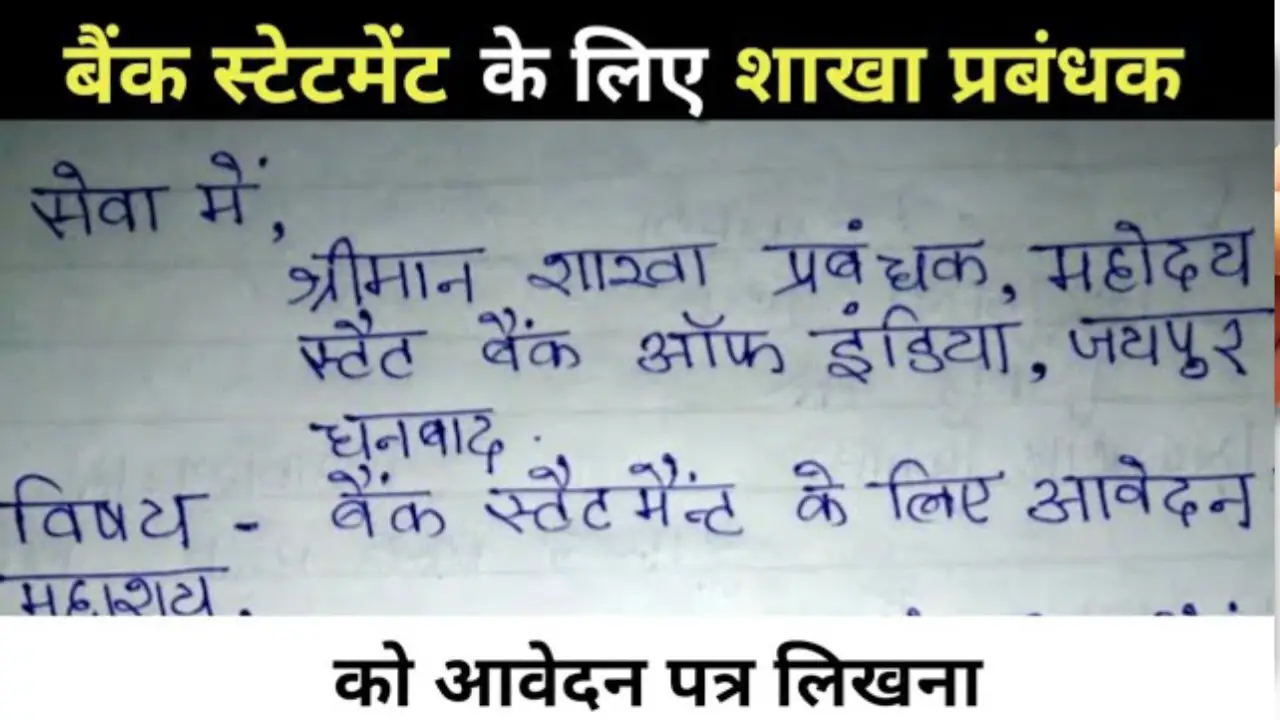 बैंक स्टेटमेंट के लिए शाखा प्रबंधक
सेवा में,
श्रीमान शाखा प्रबंधक, महोदय
स्टैट बैंक ऑफ इंडिया, जयपुर
धनबाद.
विषय - बैंक स्टैटमैन्ट के लिए आवेदन
महाशय,
को आवेदन पत्र लिखना